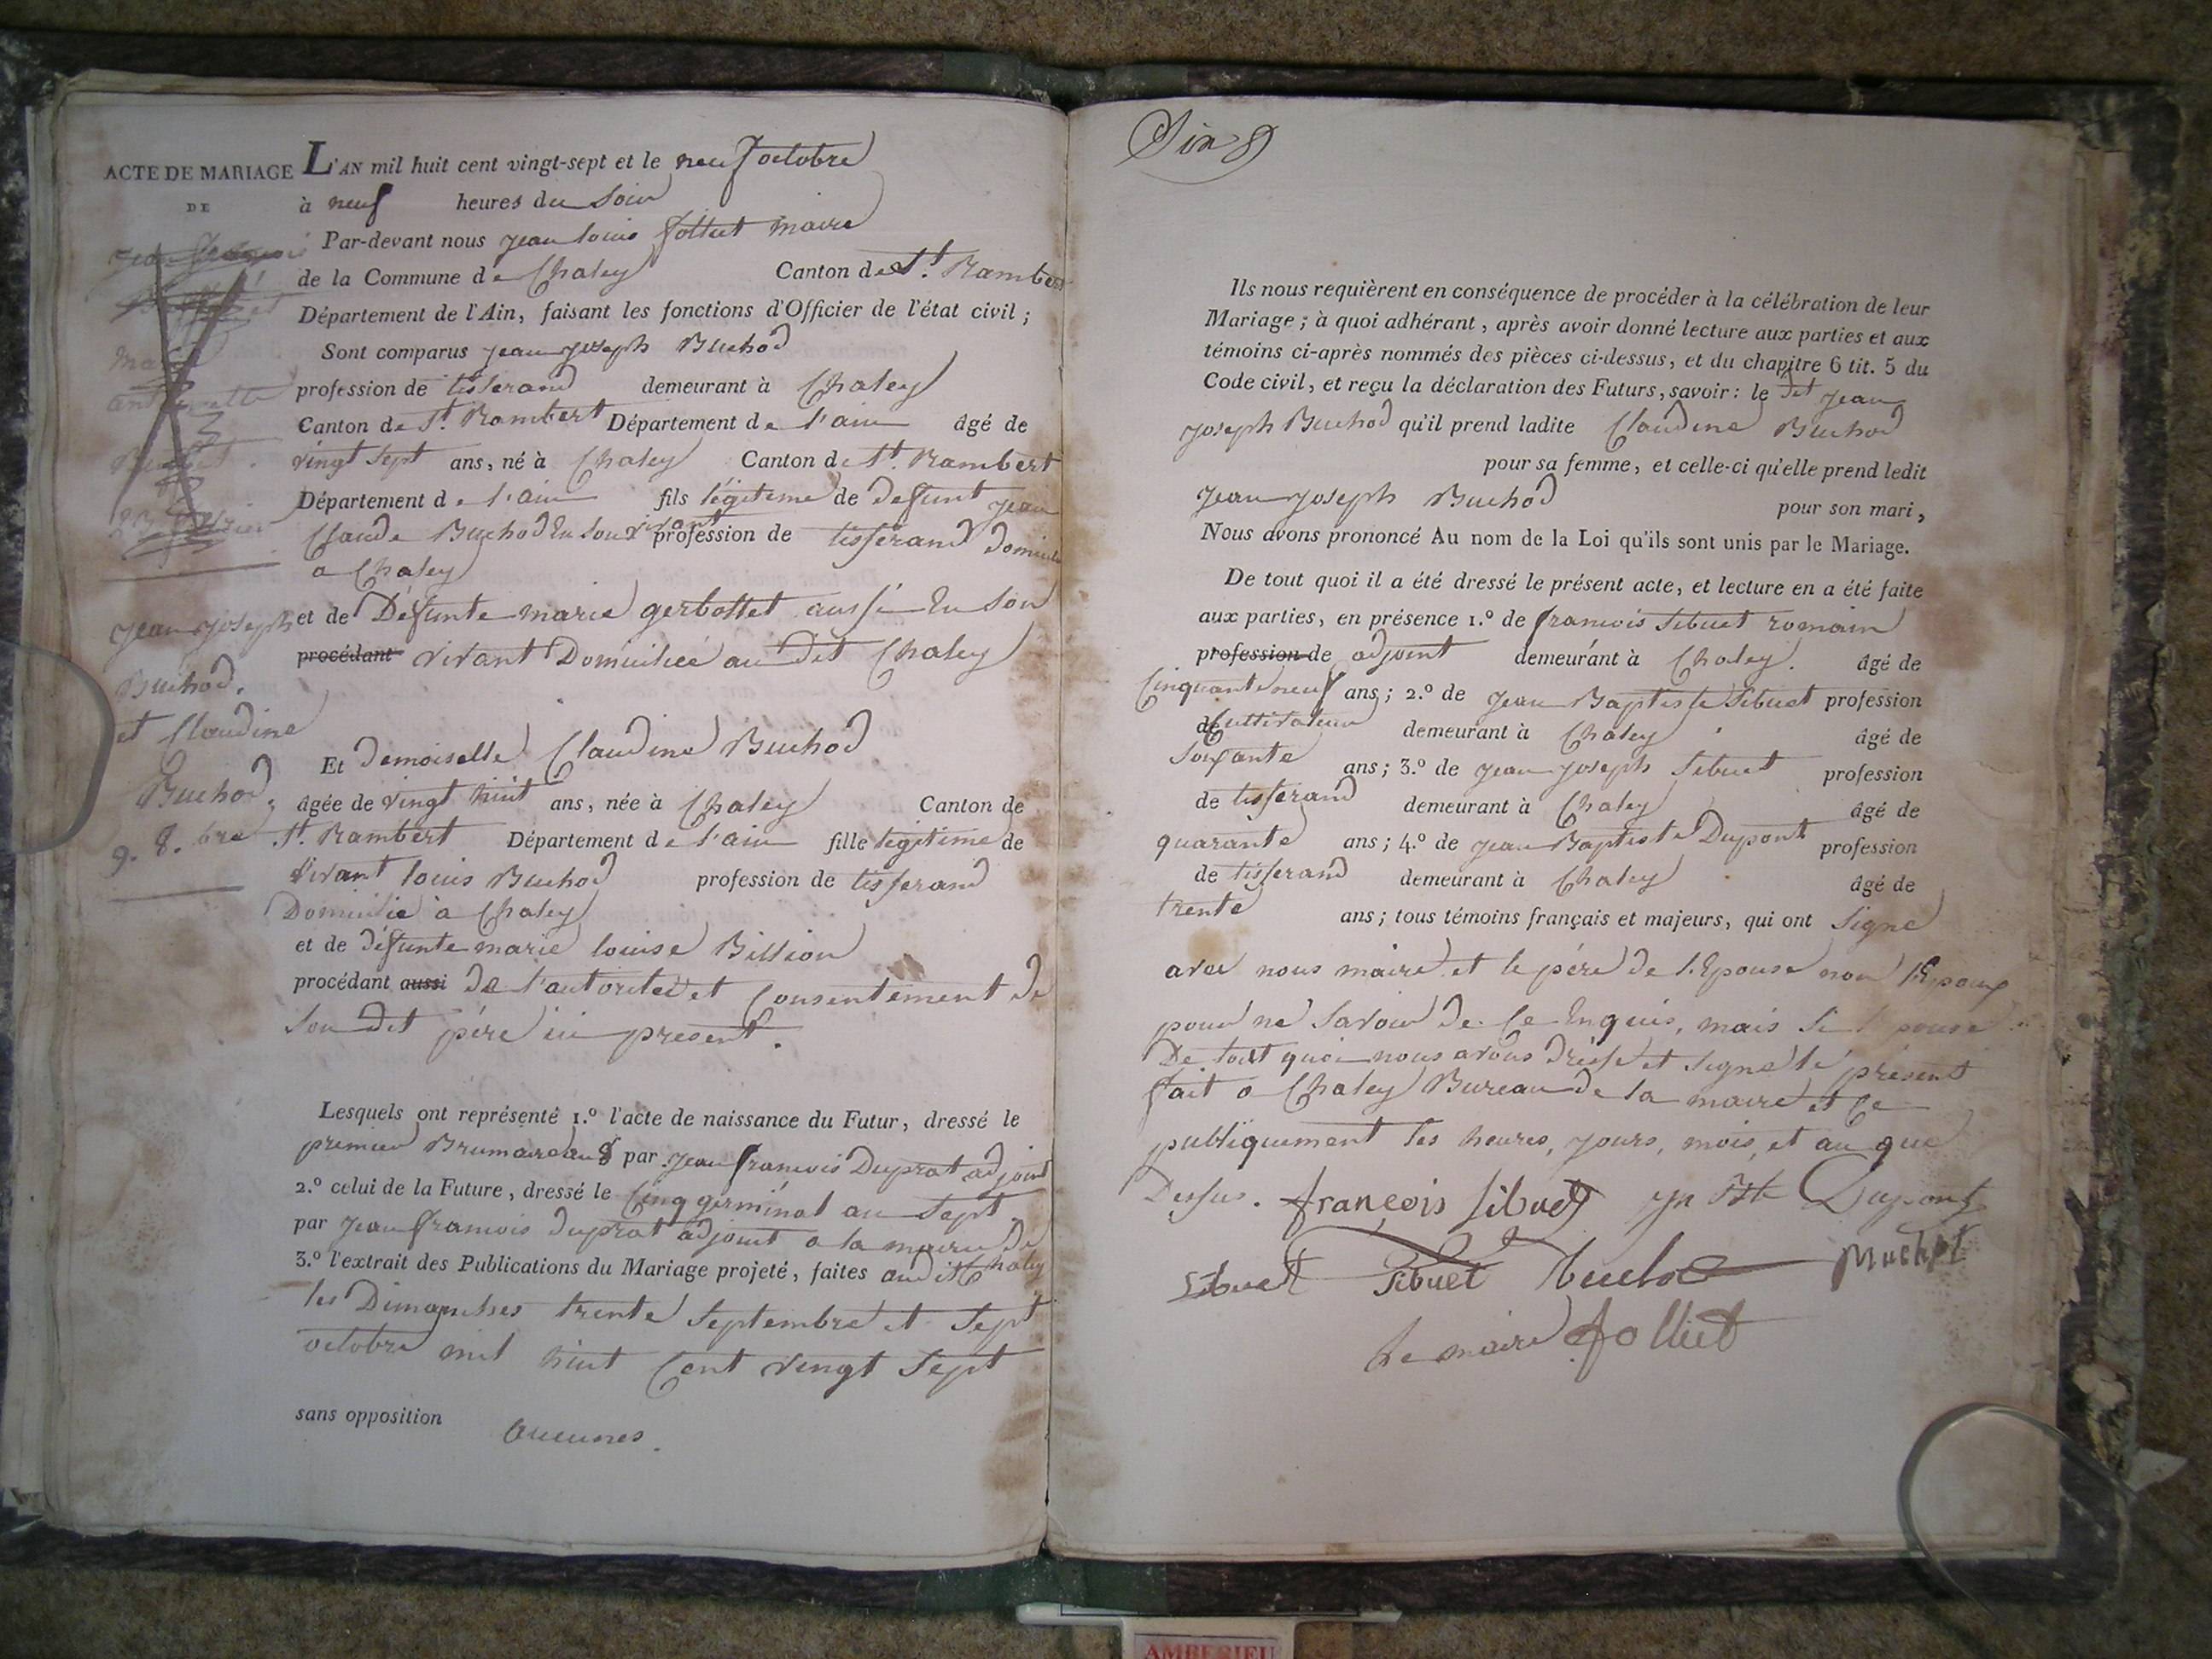 ACTE DE MARIAGE
DE
Jean Joseph
Buchod.
et Claudine
Buchod,
9. 8.bre
L'AN mil huit cent vingt-sept et le neuf octobre
à neuf heures du soir
Par-devant nous jean louis follict maire
de la Commune de Chaley Canton de St. Rambert
Département de l'Ain, faisant les fonctions d'Officier de l'état civil ;
Sont comparus jean joseph Buchod
profession de tisserand demeurant à Chaley
Canton de St. Rambert Département de l'ain âgé de
vingt sept ans, né à Chaley Canton de St. Rambert
Département de l'ain fils légitime de defunt jean
Claude Buchod En son vivant profession de tisserand domicilié
a Chaley
et de Défunte marie gerbottet aussi En son
procédant vivant Domiciliée au dit Chaley
Et demoiselle Claudine Buchod
âgée de vingt huit ans, née à Chaley Canton de
St. Rambert Département de l'ain fille legitime de
vivant louis Buchod profession de tisserand
Domicilié à Chaley
et de défunte marie louise Billion
procédant aussi de l'autorité et Consentement de
son dit père ici present.
Lesquels ont représenté 1.º l'acte de naissance du Futur, dressé le
premier Brumaire an 8 par jean francois Duprat adjoint
2.º celui de la Future, dressé le Cinq germinal an sept
par jean francois duprat adjoint a la mairie de
3.º l'extrait des Publications du Mariage projeté, faites audit Chaley
les Dimanches trente septembre et sept
octobre mil huit Cent vingt sept
sans opposition aucunes.
Ils nous requièrent en conséquence de procéder à la célébration de leur
Mariage ; à quoi adhérant, après avoir donné lecture aux parties et aux
témoins ci-après nommés des pièces ci-dessus, et du chapitre 6 tit. 5 du
Code civil, et reçu la déclaration des Futurs, savoir : le dit jean
joseph Buchod qu'il prend ladite Claudine Buchod
pour sa femme, et celle-ci qu'elle prend ledit
jean joseph Buchod pour son mari,
Nous avons prononcé Au nom de la Loi qu'ils sont unis par le Mariage.
De tout quoi il a été dressé le présent acte, et lecture en a été faite
aux parties, en présence 1.º de francois sibuet romain
profession de adjoint demeurant à Chaley. âgé de
Cinquante neuf ans ; 2.º de jean Baptiste Sibuet profession
de Cultivateur demeurant à Chaley âgé de
soixante ans ; 3.º de jean joseph Sibuet profession
de tisserand demeurant à Chaley âgé de
quarante ans ; 4.º de jean Baptiste Dupont profession
de tisserand demeurant à Chaley âgé de
trente ans ; tous témoins français et majeurs, qui ont signé
avec nous maire et le père de l'Epouse non l'Epoux
pour ne savoir de Ce Enquis, mais si l'pouse
De tout quoi nous avons dressé et signé le présent
fait a Chaley Bureau de la mairie et Ce
publiquement les heures, jours, mois, et an que
Dessus. françois sibuet jn Bte Dupont
Sibuet Sibuet Buchod
Le maire follict
AMBERIEU